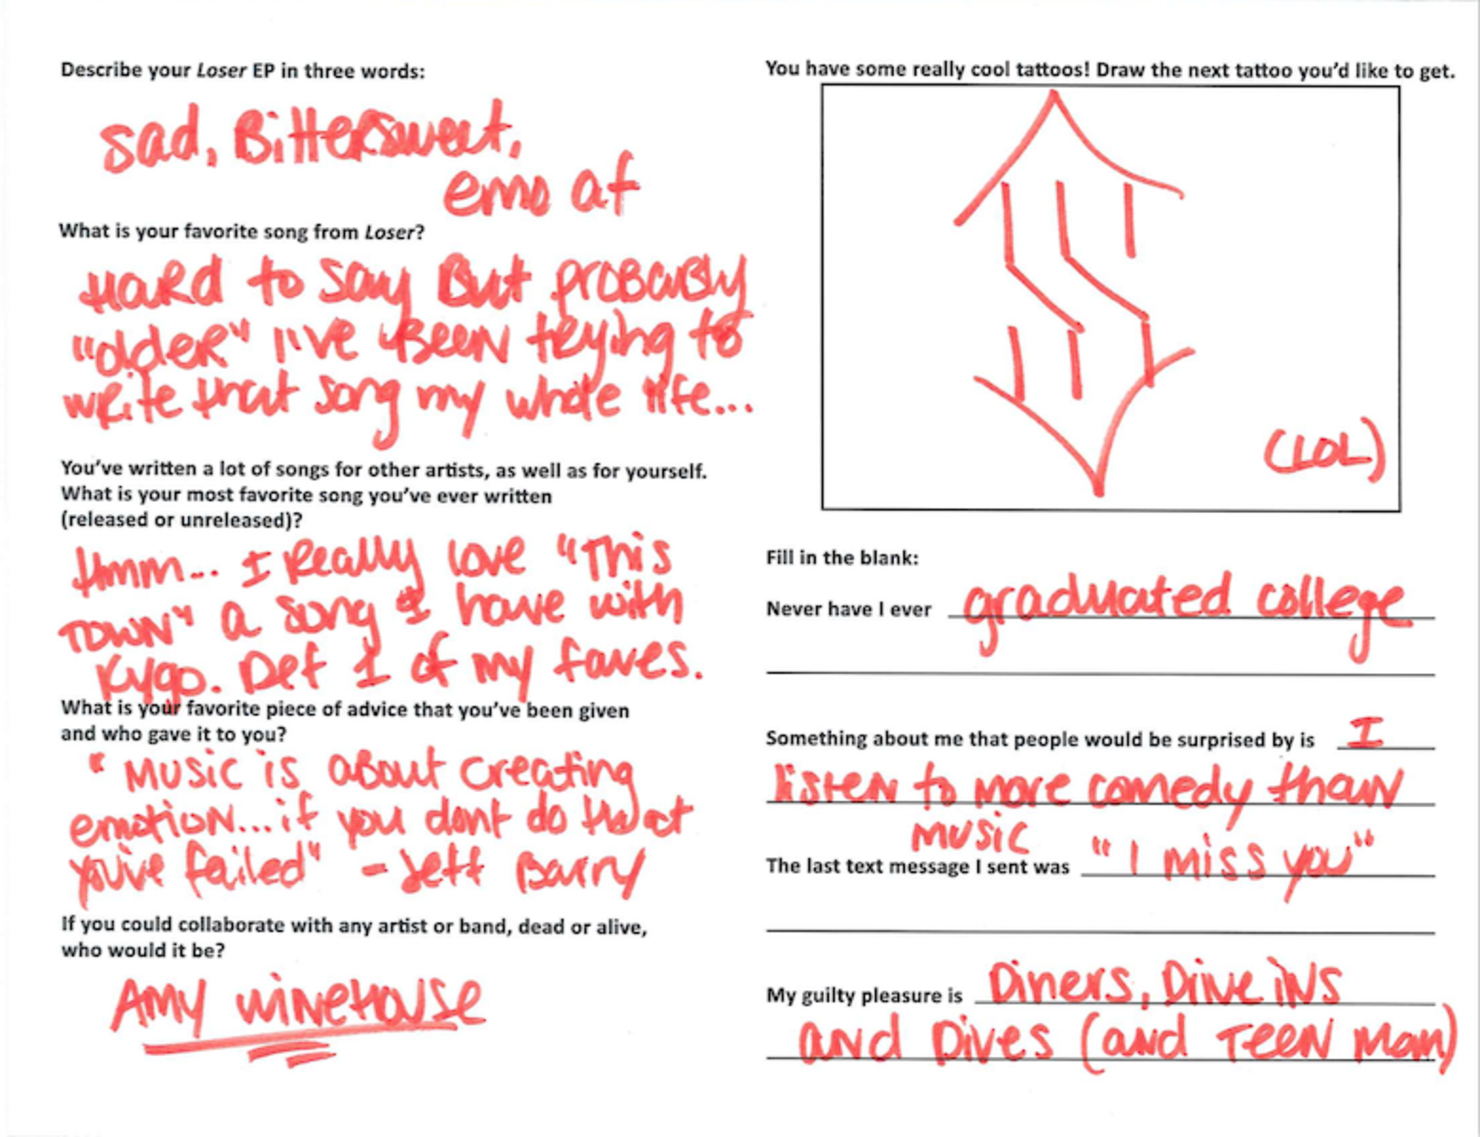 Describe your Loser EP in three words:
sad, Bittersweet,
emo af
What is your favorite song from Loser?
Hard to say But probably
"older" I've Been trying to
write that song my whole life...
You've written a lot of songs for other artists, as well as for yourself.
What is your most favorite song you've ever written
(released or unreleased)?
Hmm... I Really love "This
TOWN" a song I have with
Kygo. Def 1 of my faves.
What is your favorite piece of advice that you've been given
and who gave it to you?
"Music is about creating
emotion... if you dont do that
you've failed" - Jeff Barry
If you could collaborate with any artist or band, dead or alive,
who would it be?
Amy Winehouse
You have some really cool tattoos! Draw the next tattoo you'd like to get.
(LOL)
Fill in the blank:
Never have I ever graduated college
Something about me that people would be surprised by is I
listen to more comedy than
music
The last text message I sent was "I miss you"
My guilty pleasure is Diners, Drive ins
and Dives (and Teen Mom)